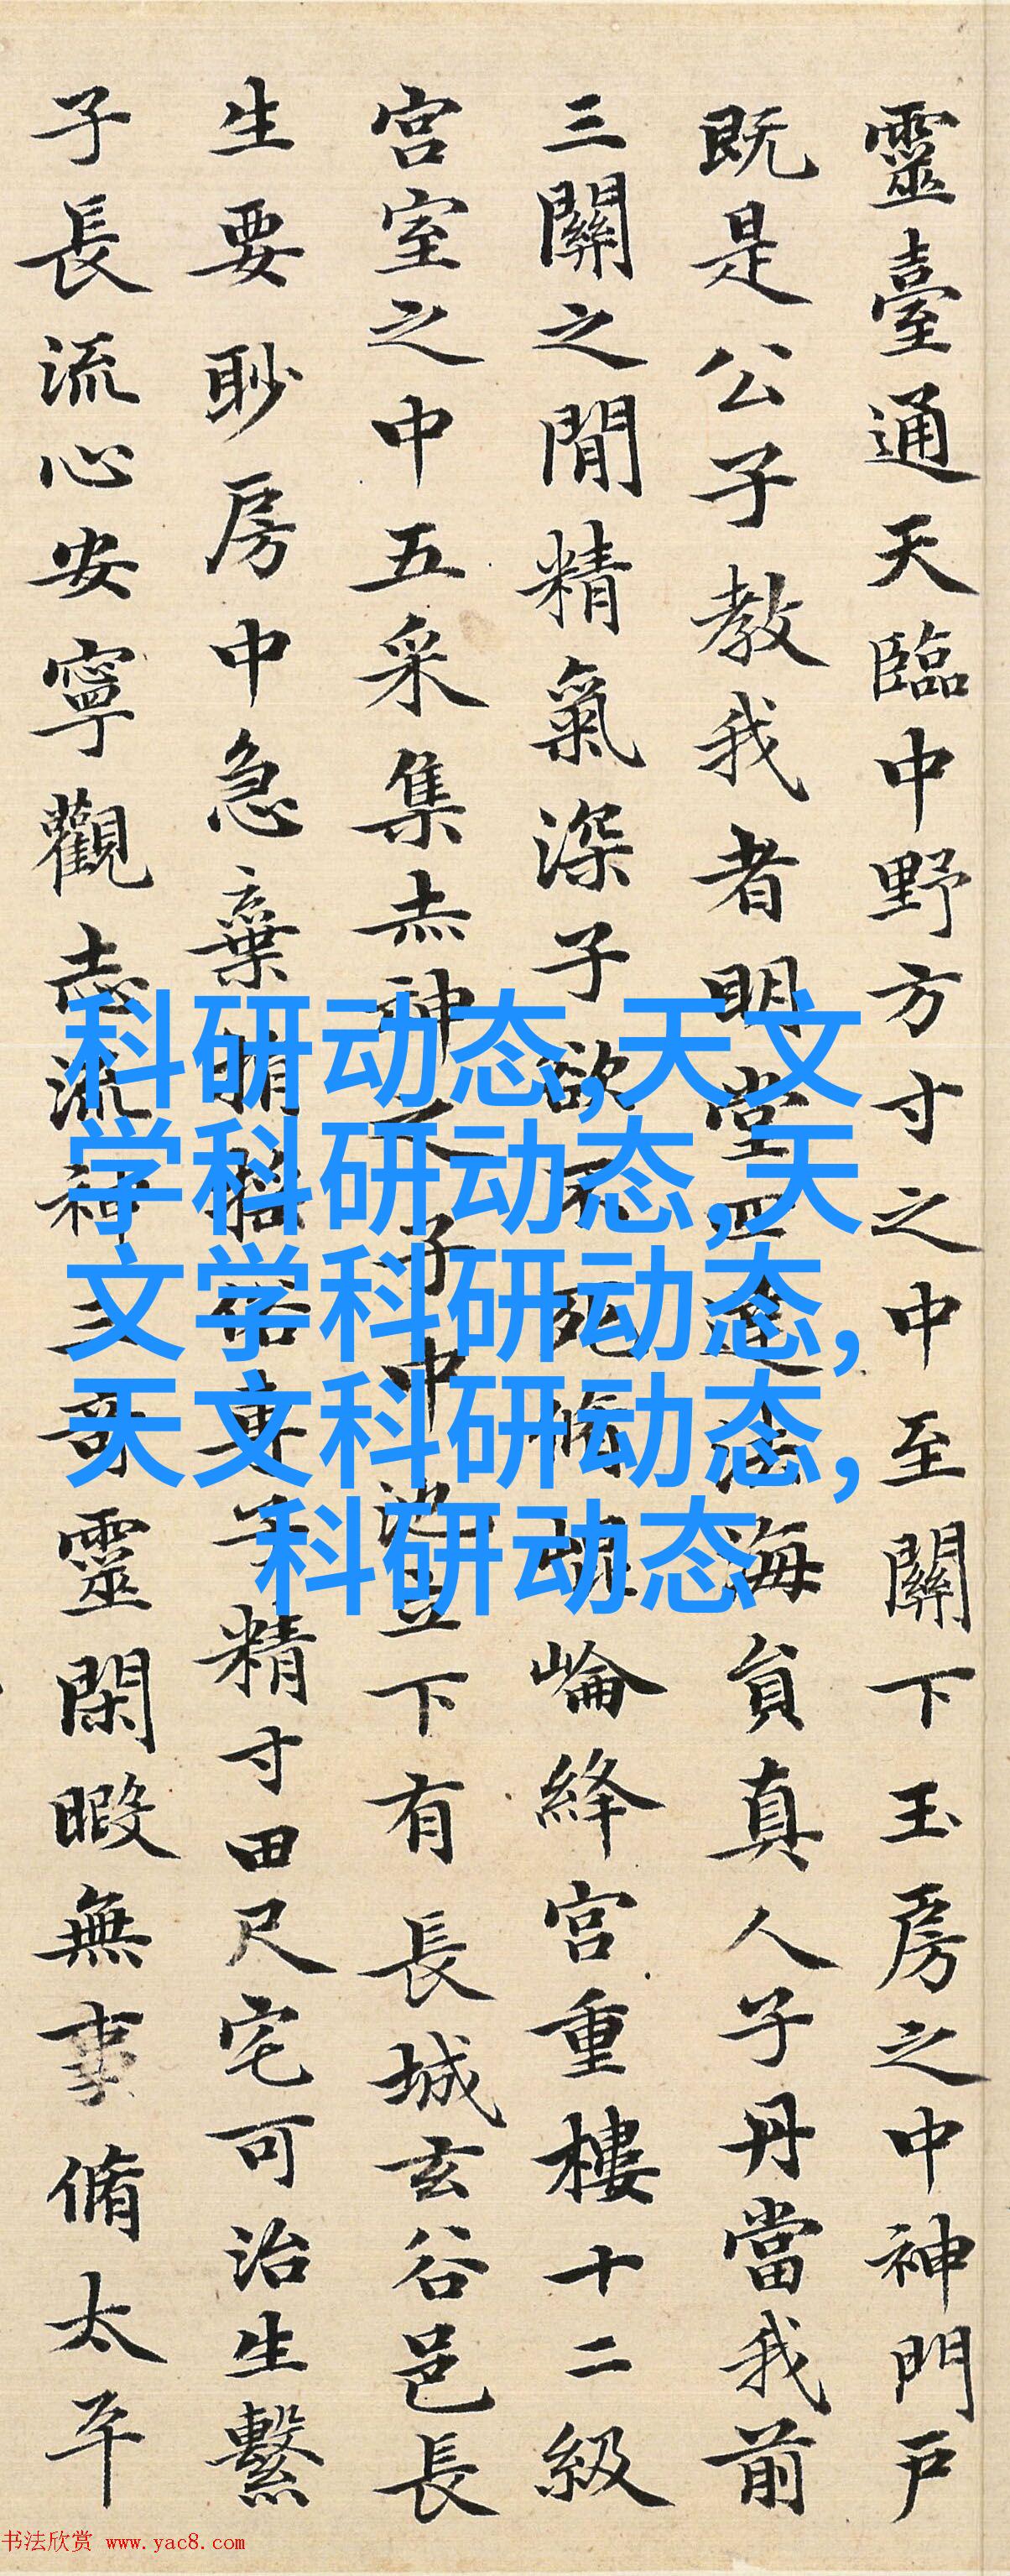 靈臺通天臨中野方寸之中至關下玉房之中神門戶
既是公子教我者明堂四達法海員真人子丹當我前
三關之閒精氣深子欲不死脩崐崘絳宮重樓十二級
宮室之中五采集赤神之子中池立下有長城玄谷邑長
生要眇房中急棄捐俗專子精寸田尺宅可治生繫
子長流心安寧觀志流神三奇靈閑暇無事脩太平
科研动态,天文
学科研动态,天
文学科研动态,
天文科研动态,
科研动态
书法欣赏 www.yac8.com